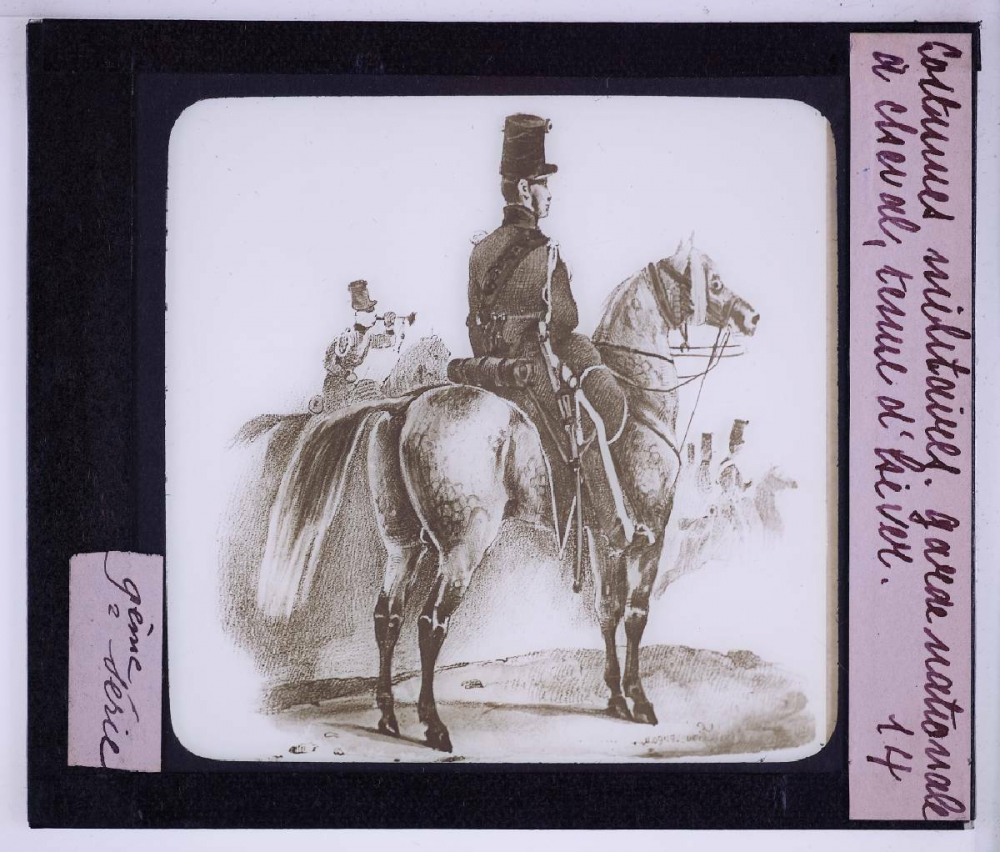 Costumes militaires. garde nationale
à cheval, tenue d'hiver. 14
9ème Série